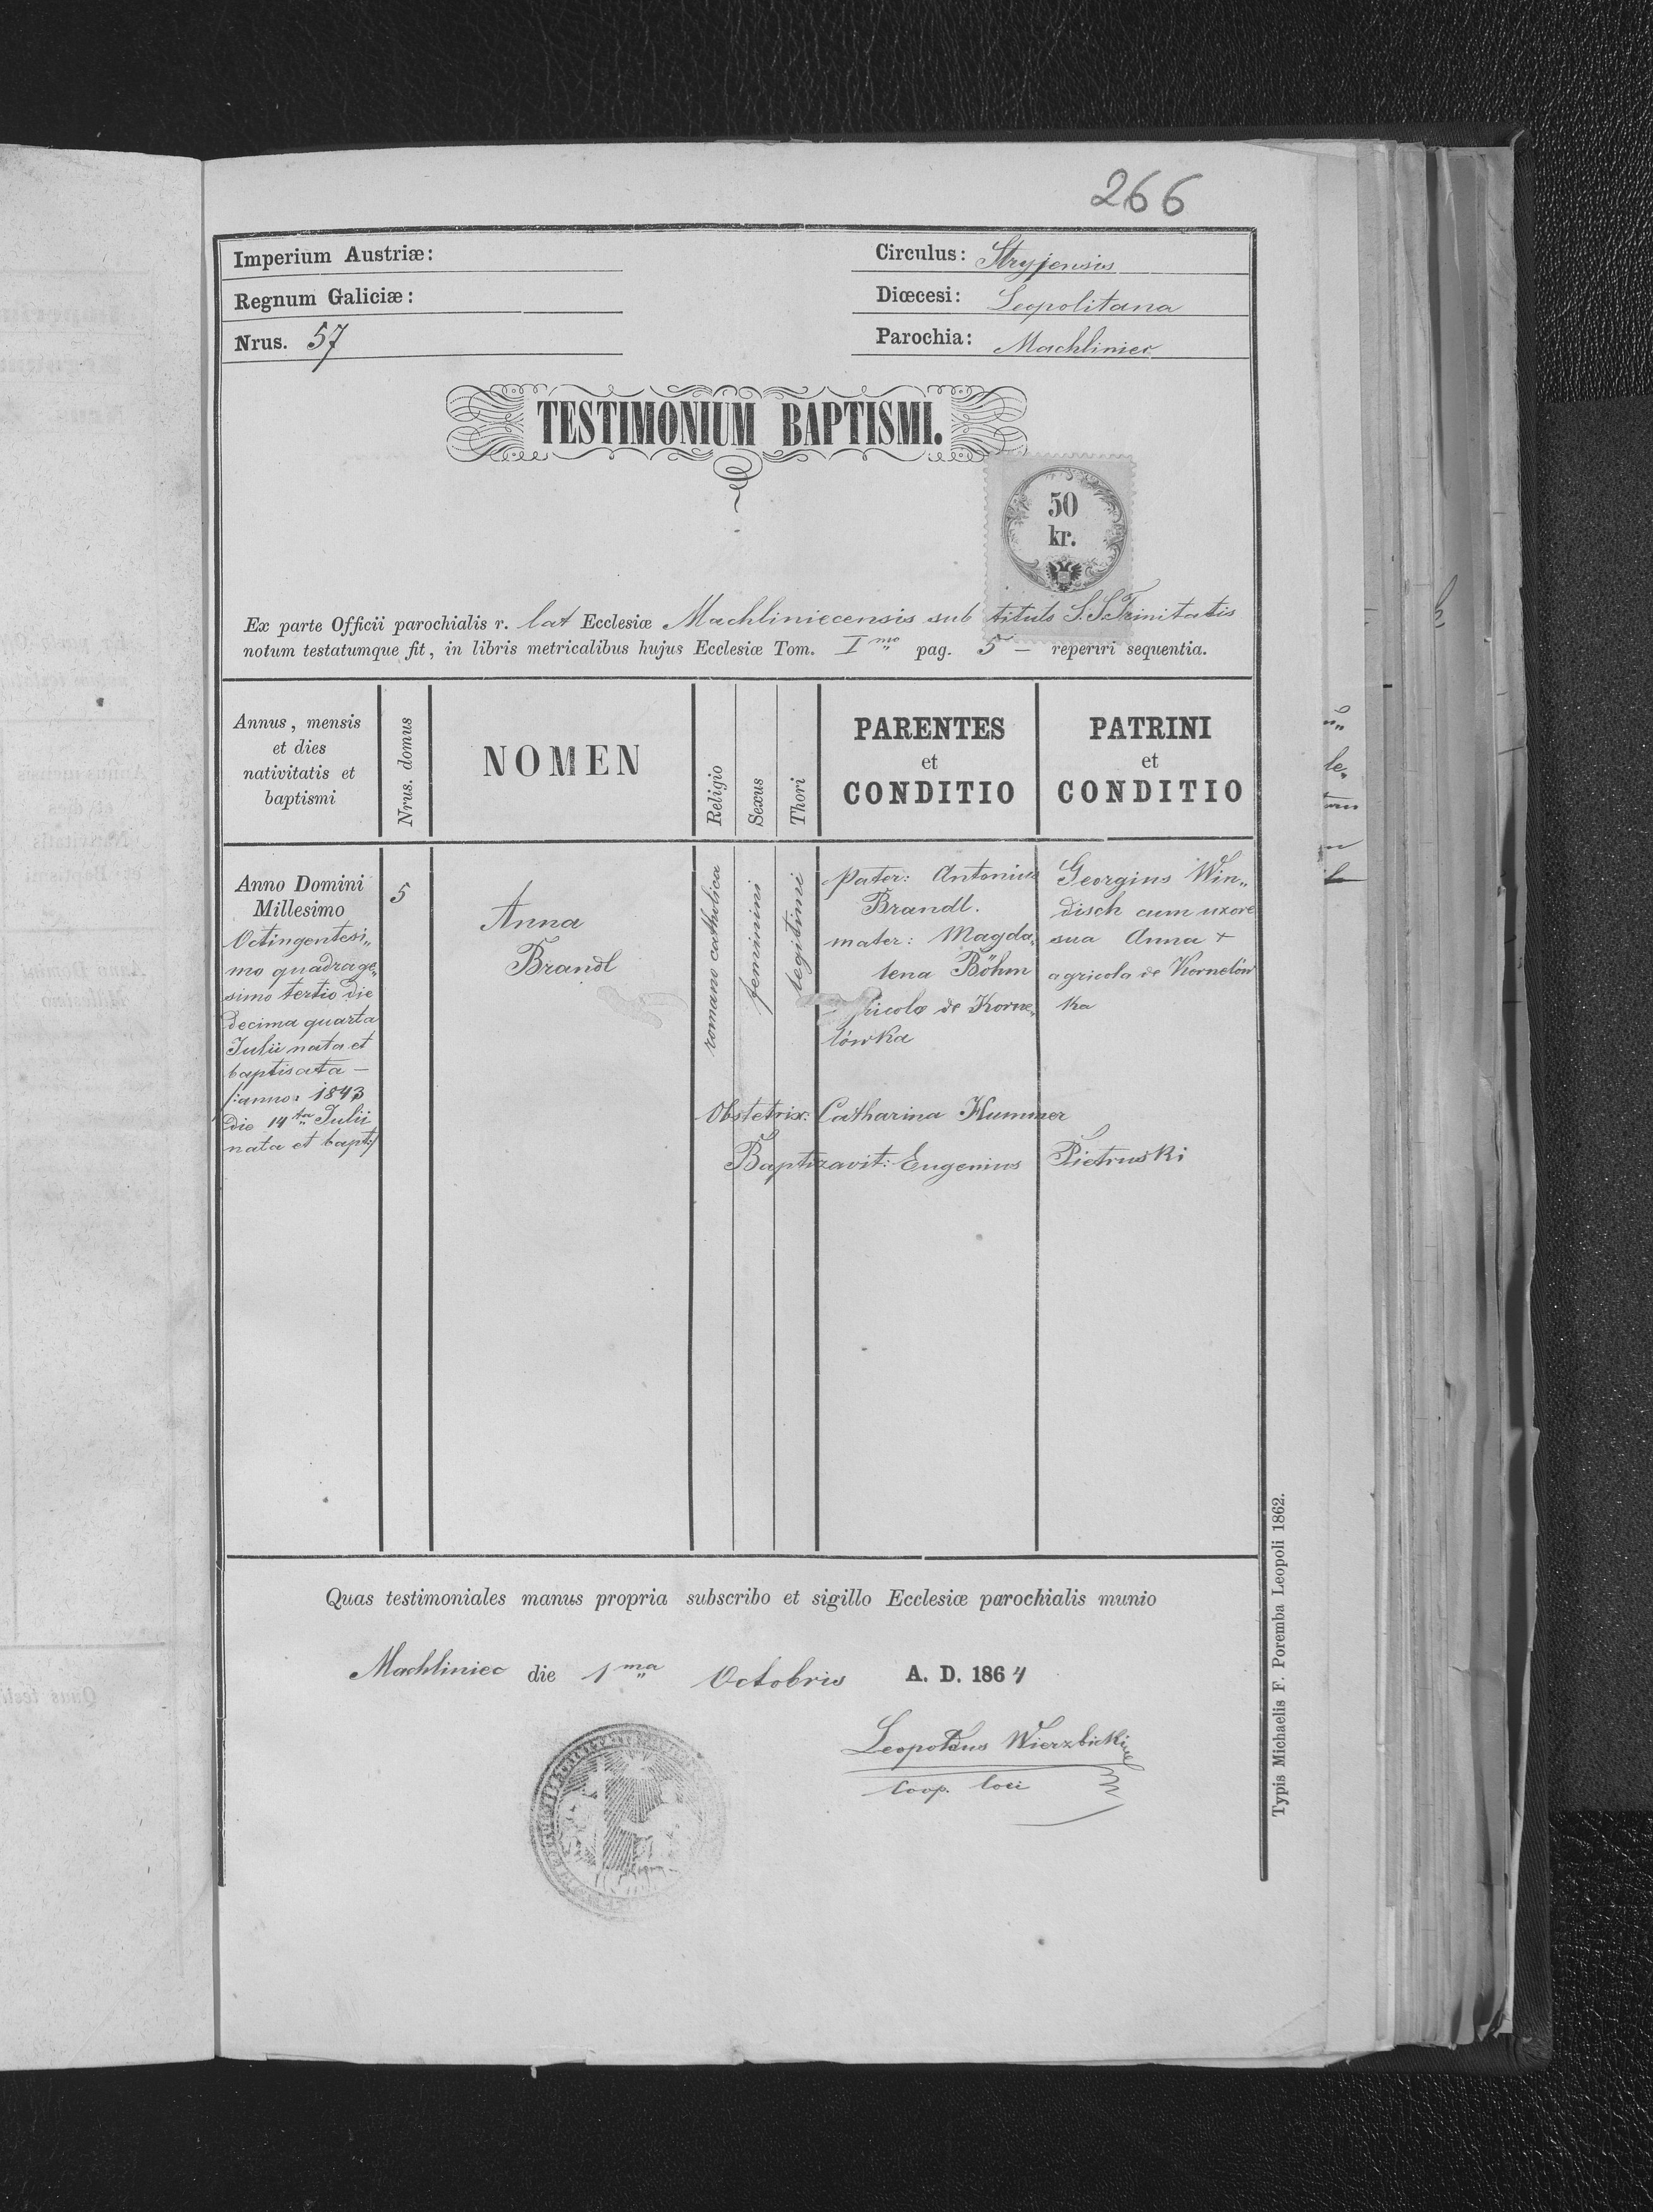 266
Imperium Austriæ:
Circulus: Stryjensis
Regnum Galiciæ:
Diœcesi: Leopolitana
Nrus. 57
Parochia: Machliniec
TESTIMONIUM BAPTISMI.
50
kr.
Ex parte Officii parochialis r. lat Ecclesiæ Machliniecensis sub titulo S.S.Trinitatis
notum testatumque fit, in libris metricalibus hujus Ecclesiæ Tom. I mo pag. 5 — reperiri sequentia.
Annus, mensis
et dies
nativitatis et
baptismi
Nrus. domus
NOMEN
Religio
Sexus
Thori
PARENTES
et
CONDITIO
PATRINI
et
CONDITIO
Anno Domini
Millesimo
Octingentesi„
mo quadrage„
simo tertio die
decima quarta
Julii nata et
baptisata —
/:anno: 1843
die 14ta Julii
nata et bapt:/
5
Anna
Brandl
romano catholica
feminini
legitimi
pater: Antonius
Brandl.
mater: Magda„
lena Böhm
agricola de Korne„
lówka
Georgius Win„
disch cum uxore
sua Anna +
agricola de Kornelów
ka
Obstetrix: Catharina Hummer
Baptizavit: Eugenius Pietruski
Quas testimoniales manus propria subscribo et sigillo Ecclesiæ parochialis munio
Machliniec die 1ma Octobris A. D. 1864
Leopoldus Wierzbicki
Coop. loci
Typis Michaelis F. Poremba Leopoli 1862.